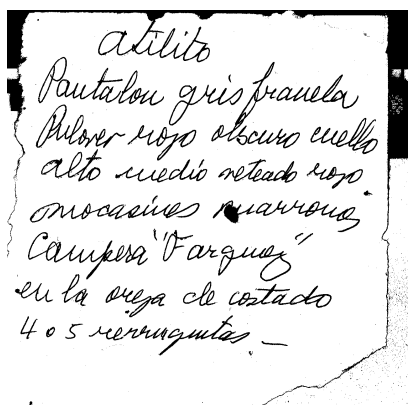 atilito
Pantalon gris franela
Pulover rojo obscuro cuello
alto medio veteado rojo
mocasines marrones
Campera "Farguez"
en la oreja de costado
4 o 5 verruguitas. _